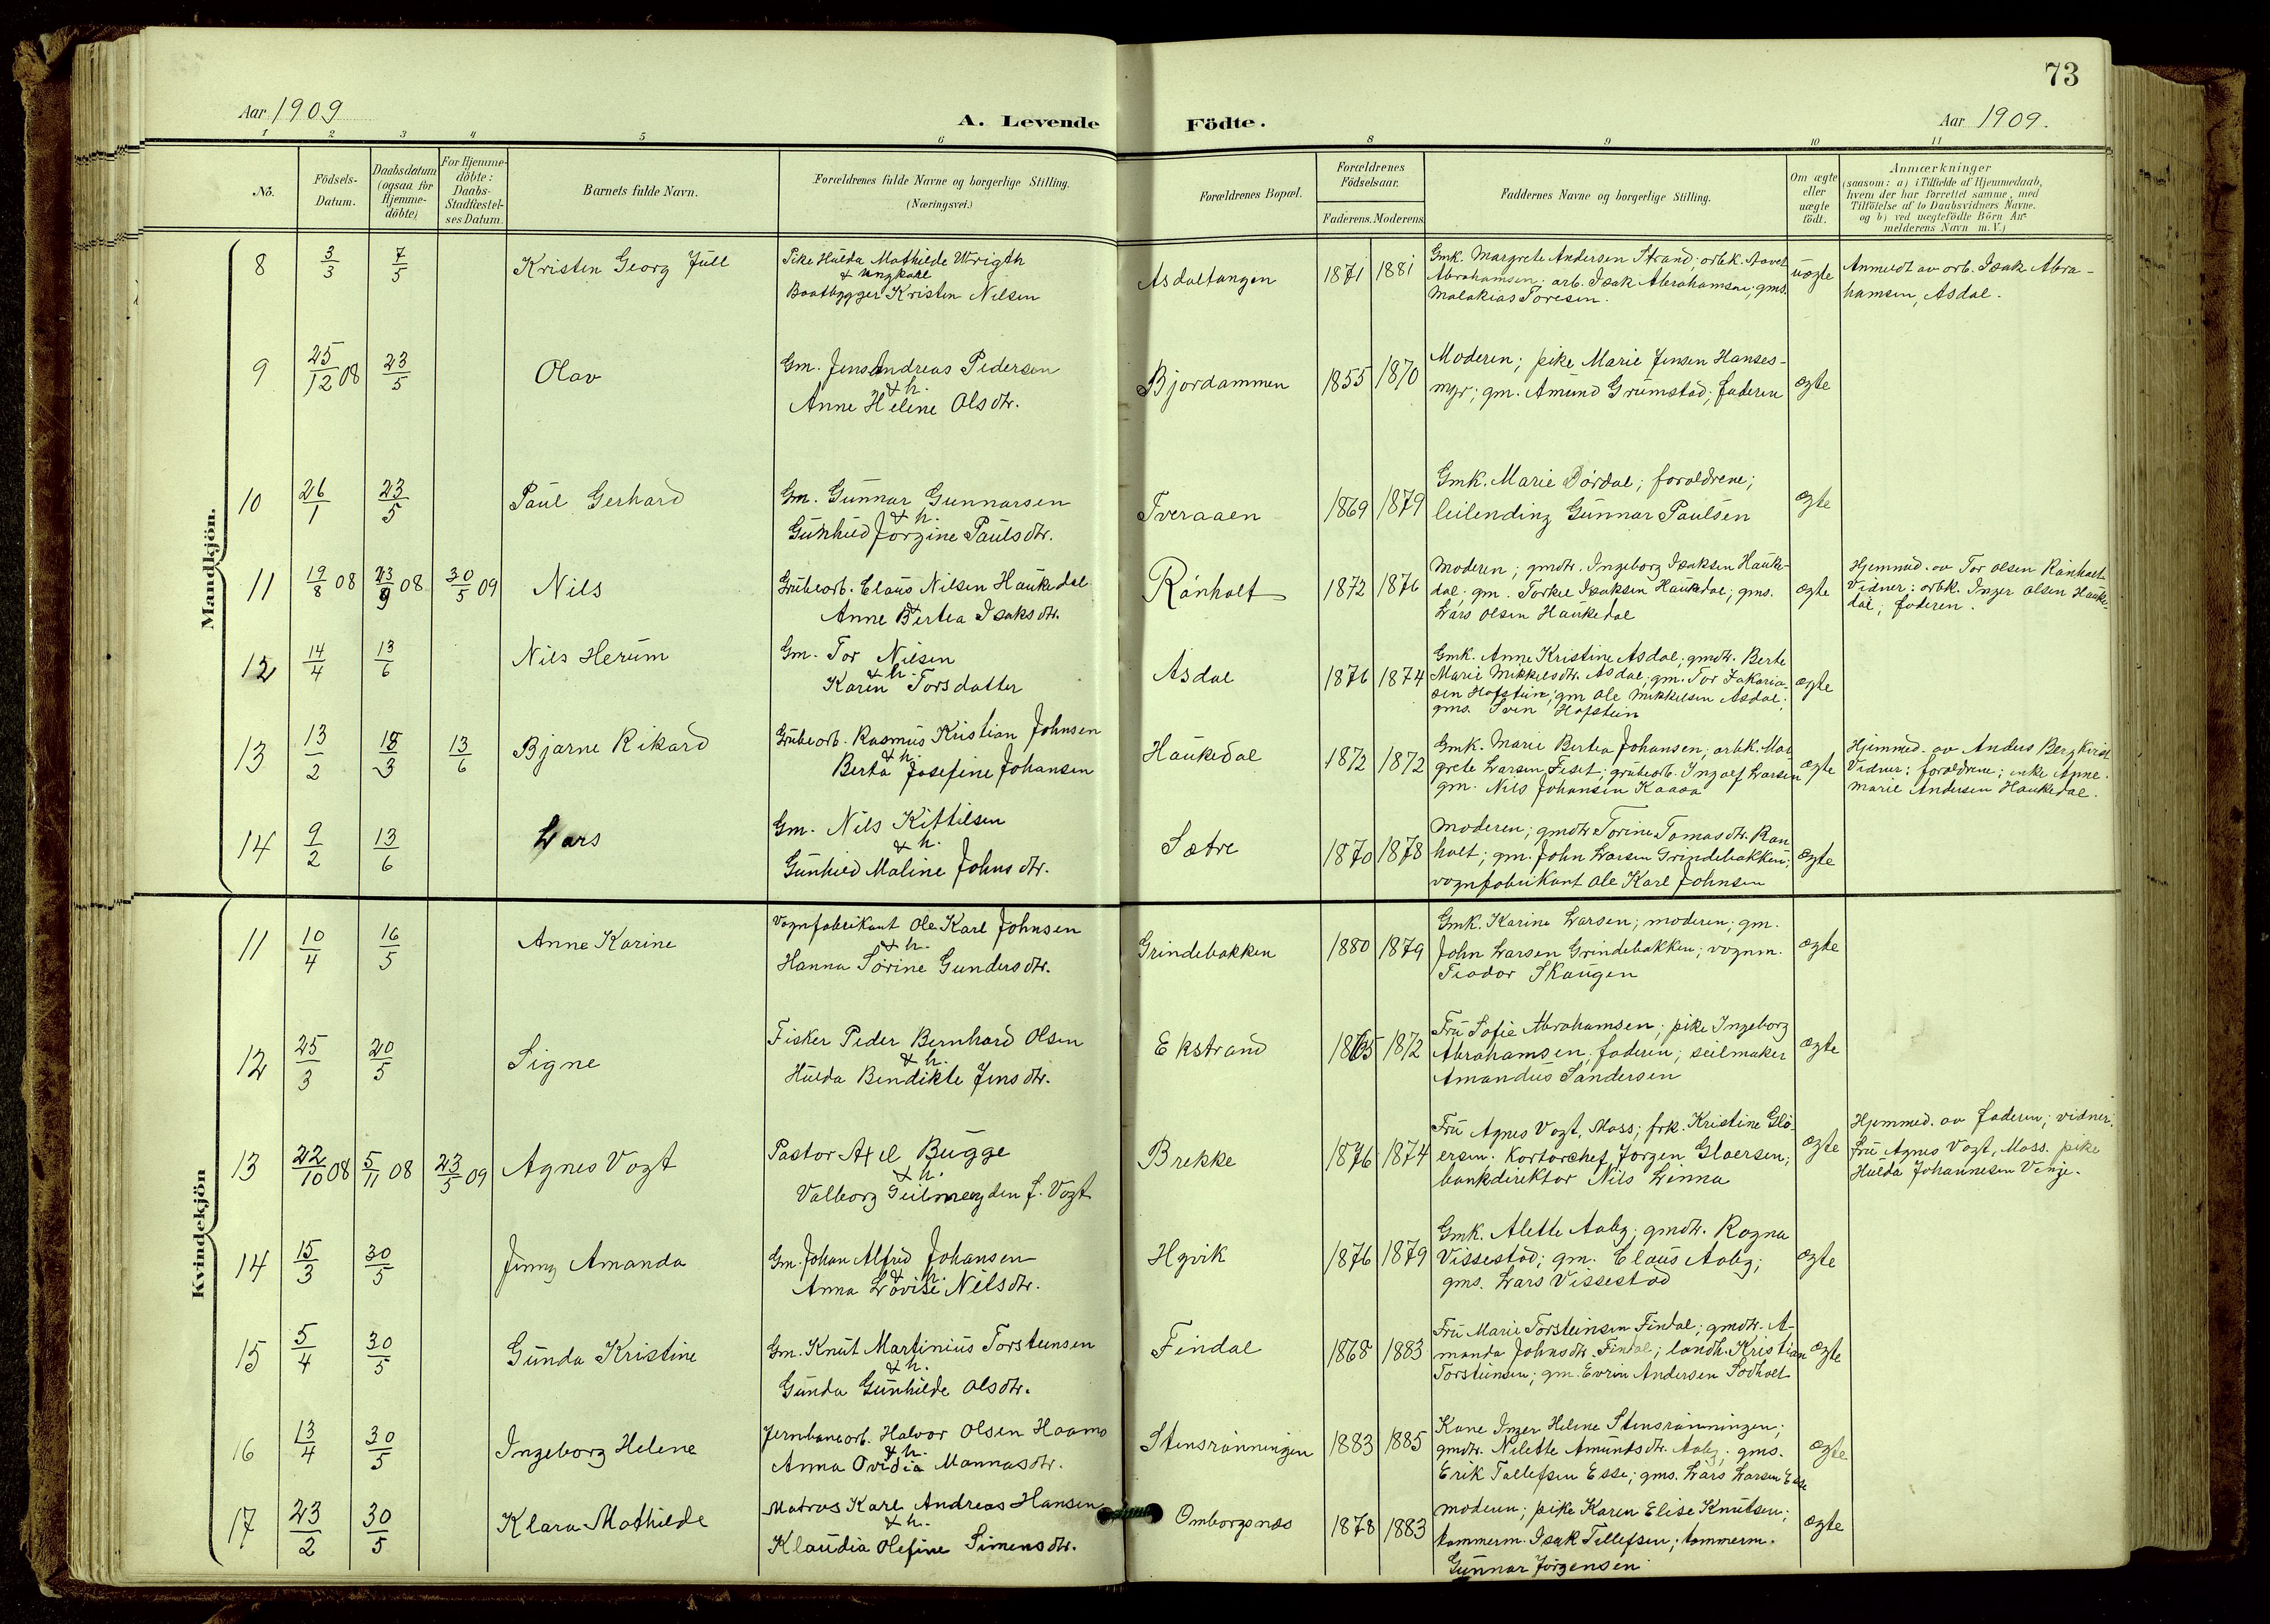 73
Aar 1909
A. Levende Födte.
Aar 1909.
1 2 3 4 5 6 8 9 10 11
No.
Födsels-
Datum.
Daabsdatum
(ogsaa for
Hjemme-
döbte)
For Hjemme-
döbte:
Daabs-
Stadfæstel-
ses Datum.
Barnets fulde Navn.
Forældrenes fulde Navne og borgerlige Stilling.
(Næringsvei.)
Forældrenes Bopæl.
Forældrenes
Födselsaar.
Faderens. Moderens.
Faddernes Navne og borgerlige Stilling.
Om ægte
eller
uægte
födt.
Anmærkninger
(saasom: a) i Tilfælde af Hjemmedaab,
hvem der har forrettet samme, med
Tilföielse af to Daabsvidners Navne.
og b) ved uægtefödte Börn An-
melderens Navn m. V.)
Mandkjön.
8 3/3 7/5 Kristen Georg Jull
Pike Hulda Mathilde Wrigth
& ungkarl
Baatbygger Kristen Nilsen
Asdaltangen 1871 1881
Gmk. Margrete Andersen Strand; arbk. Aavet
Abrahamsen; arb. Isak Abrahamsen; gms.
Malakias Toresen.
uægte
Anmeldt av arb. Isak Abra-
hamsen, Asdal.
9 25/12 08 23/5 Olav
Gm. Jens Andreas Pedersen
& h.
Anne Heline Olsdtr.
Bjordammen 1855 1870
Moderen; pike Marie Jensen Hanses-
myr; gm. Amund Grumstad; faderen
ægte
10 26/1 23/5 Paul Gerhard
Gm. Gunnar Gunnarsen
& h.
Gunhild Jorgine Paulsdtr.
Tveraaen 1869 1879
Gmk. Marie Dórdal; foraldrene;
leilending Gunnar Paulsen
ægte
11 19/8 08 23/9 08 30/5 09 Nils
Grubearb. Claus Nilsen Haukedal
&
Anne Bertea Isaksdtr.
Ránholt 1872 1876
Moderen; gmdtr. Ingeborg Isaksen Hauke-
dal; gm. Torkel Isaksen Haukedal; gms.
Lars Olsen Haukedal
ægte
Hjemmed. av Tor Olsen Ránholt
Vidner: arbk. Inger Olsen Hauke-
dal, faderen.
12 14/4 13/6 Nils Herum
Gm. Tor Nilsen
& h.
Karen Torsdatter
Asdal 1876 1874
Gmk. Anne Kristine Asdal; gmdtr. Berte
Marie Mikkelsdtr. Asdal; gm. Tor Zakaria-
sen Hafstein; gm Ole Mikkelsen Asdal;
gms. Sven Hafstein
ægte
13 13/2 18/3 13/6 Bjarne Rikard
Grubearb. Rasmus Kristian Johnsen
& h.
Berta Josefine Johansen
Haukedal 1872 1872
Gmk. Marie Bertea Johansen; arbk. Mar
grete Larsen Fiset; grubearb. Ingolf Larsen
gm. Nils Johansen Kaasa
ægte
Hjemmed. av Anders Berg
Vidner: foraldrene; enke Anne
marie Andersen Haukedal.
14 9/2 13/6 Lars
Gm. Nils Kittilsen
& h.
Gunhild Maline Johnsdtr.
Sætre 1870 1878
Moderen; gmdtr Torine Tomasdtr. Ran
holt; gm. John Larsen Grindebakken;
vognfabrikant Ole Karl Johnsen
ægte
Kvindekjön
11 10/4 16/5 Anne Karine
Vognfabrikant Ole Karl Johnsen
& h.
Hanna Sørine Gundersdtr.
Grindebakken 1880 1879
Gmk. Karine Larsen; moderen; gm.
John Larsen Grindebakken; vognm.
Teodor Skaugen
ægte
12 25/3 20/5 Signe
Fisker Peder Bernhard Olsen
& h.
Hulda Bendikte Jensdtr.
Ekstrand 1865 1872
Fru Sofie Abrahamsen; pike Ingeborg
Abrahamsen; faderen; seilmaker
Amandus Sandersen
ægte
13 22/10 08 5/11 08 23/5 09 Agnes Vogt
Pastor Axel Bugge
& h.
Valborg Geilmuyden f. Vogt
Brekke 1876 1874
Fru Agnes Vogt, Moss; frk. Kristine Glö-
ersen. Kortorchef Jørgen Gloersen;
bankdirektør Nils Linna
ægte
Hjemmed. av faderen; vidner:
Fru Agnes Vogt, Moss. pike
Hulda Johannesen Venje.
14 15/3 30/5 Jenny Amanda
Gm. Johan Alfred Johansen
& h.
Anna Lovise Nilsdtr.
Høvik 1876 1879
Gmk. Alette Aaby; gmdtr. Ragna
Vissestad; gm. Claus Aaby;
gms. Lars Vissestad
ægte
15 5/4 30/5 Gunda Kristine
Gm. Knut Martinius Torsteinsen
& h.
Gunda Gunhilde Olsdtr.
Findal 1868 1883
Fru Marie Torsteinsen Findal; gmdtr. A-
manda Johnsdtr. Findal; landh. Kristian
Torsteinsen; gm. Evrin Andersen Sodholt
ægte
16 13/4 30/5 Ingeborg Helene
Jernbanearb. Halvor Olsen Haamo
& h.
Anna Ovidia Mannasdtr.
Stensrönningen 1883 1885
Kone Inger Helene Stensrönningen;
gmdtr. Nilette Amundsdtr. Aaby; gms.
Erik Tallefsen Esse; gms. Lars Larsen Esse
ægte
17 23/2 30/5 Klara Mathilde
Matros Karl Andreas Hansen
& h.
Klaudia Olefine Simensdtr.
Omborgsnæs 1878 1883
Moderen; pike Karen Elise Knutsen;
tommerm. Isak Tellefsen; tommerm.
Gunnar Jørgensen
ægte